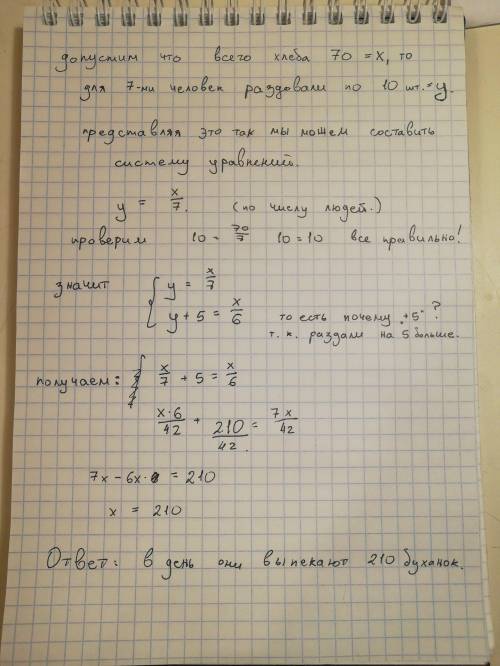 допустим что всего хлеба 70 = x, то
для 7-ми человек раздовали по 10 шт. = y.
представляя это так мы можем составить
систему уравнений.
y = x/7. (по числу людей.)
проверим 10 = 70/7 10 = 10 все правильно!
значит { y = x/7
y + 5 = x/6 то есть почему "+5"?
т. к. раздали на 5 больше.
получаем: x/7 + 5 = x/6
x·6/42 + 210/42. = 7x/42
7x - 6x = 210
x = 210
Ответ: в день они выпекают 210 буханок.